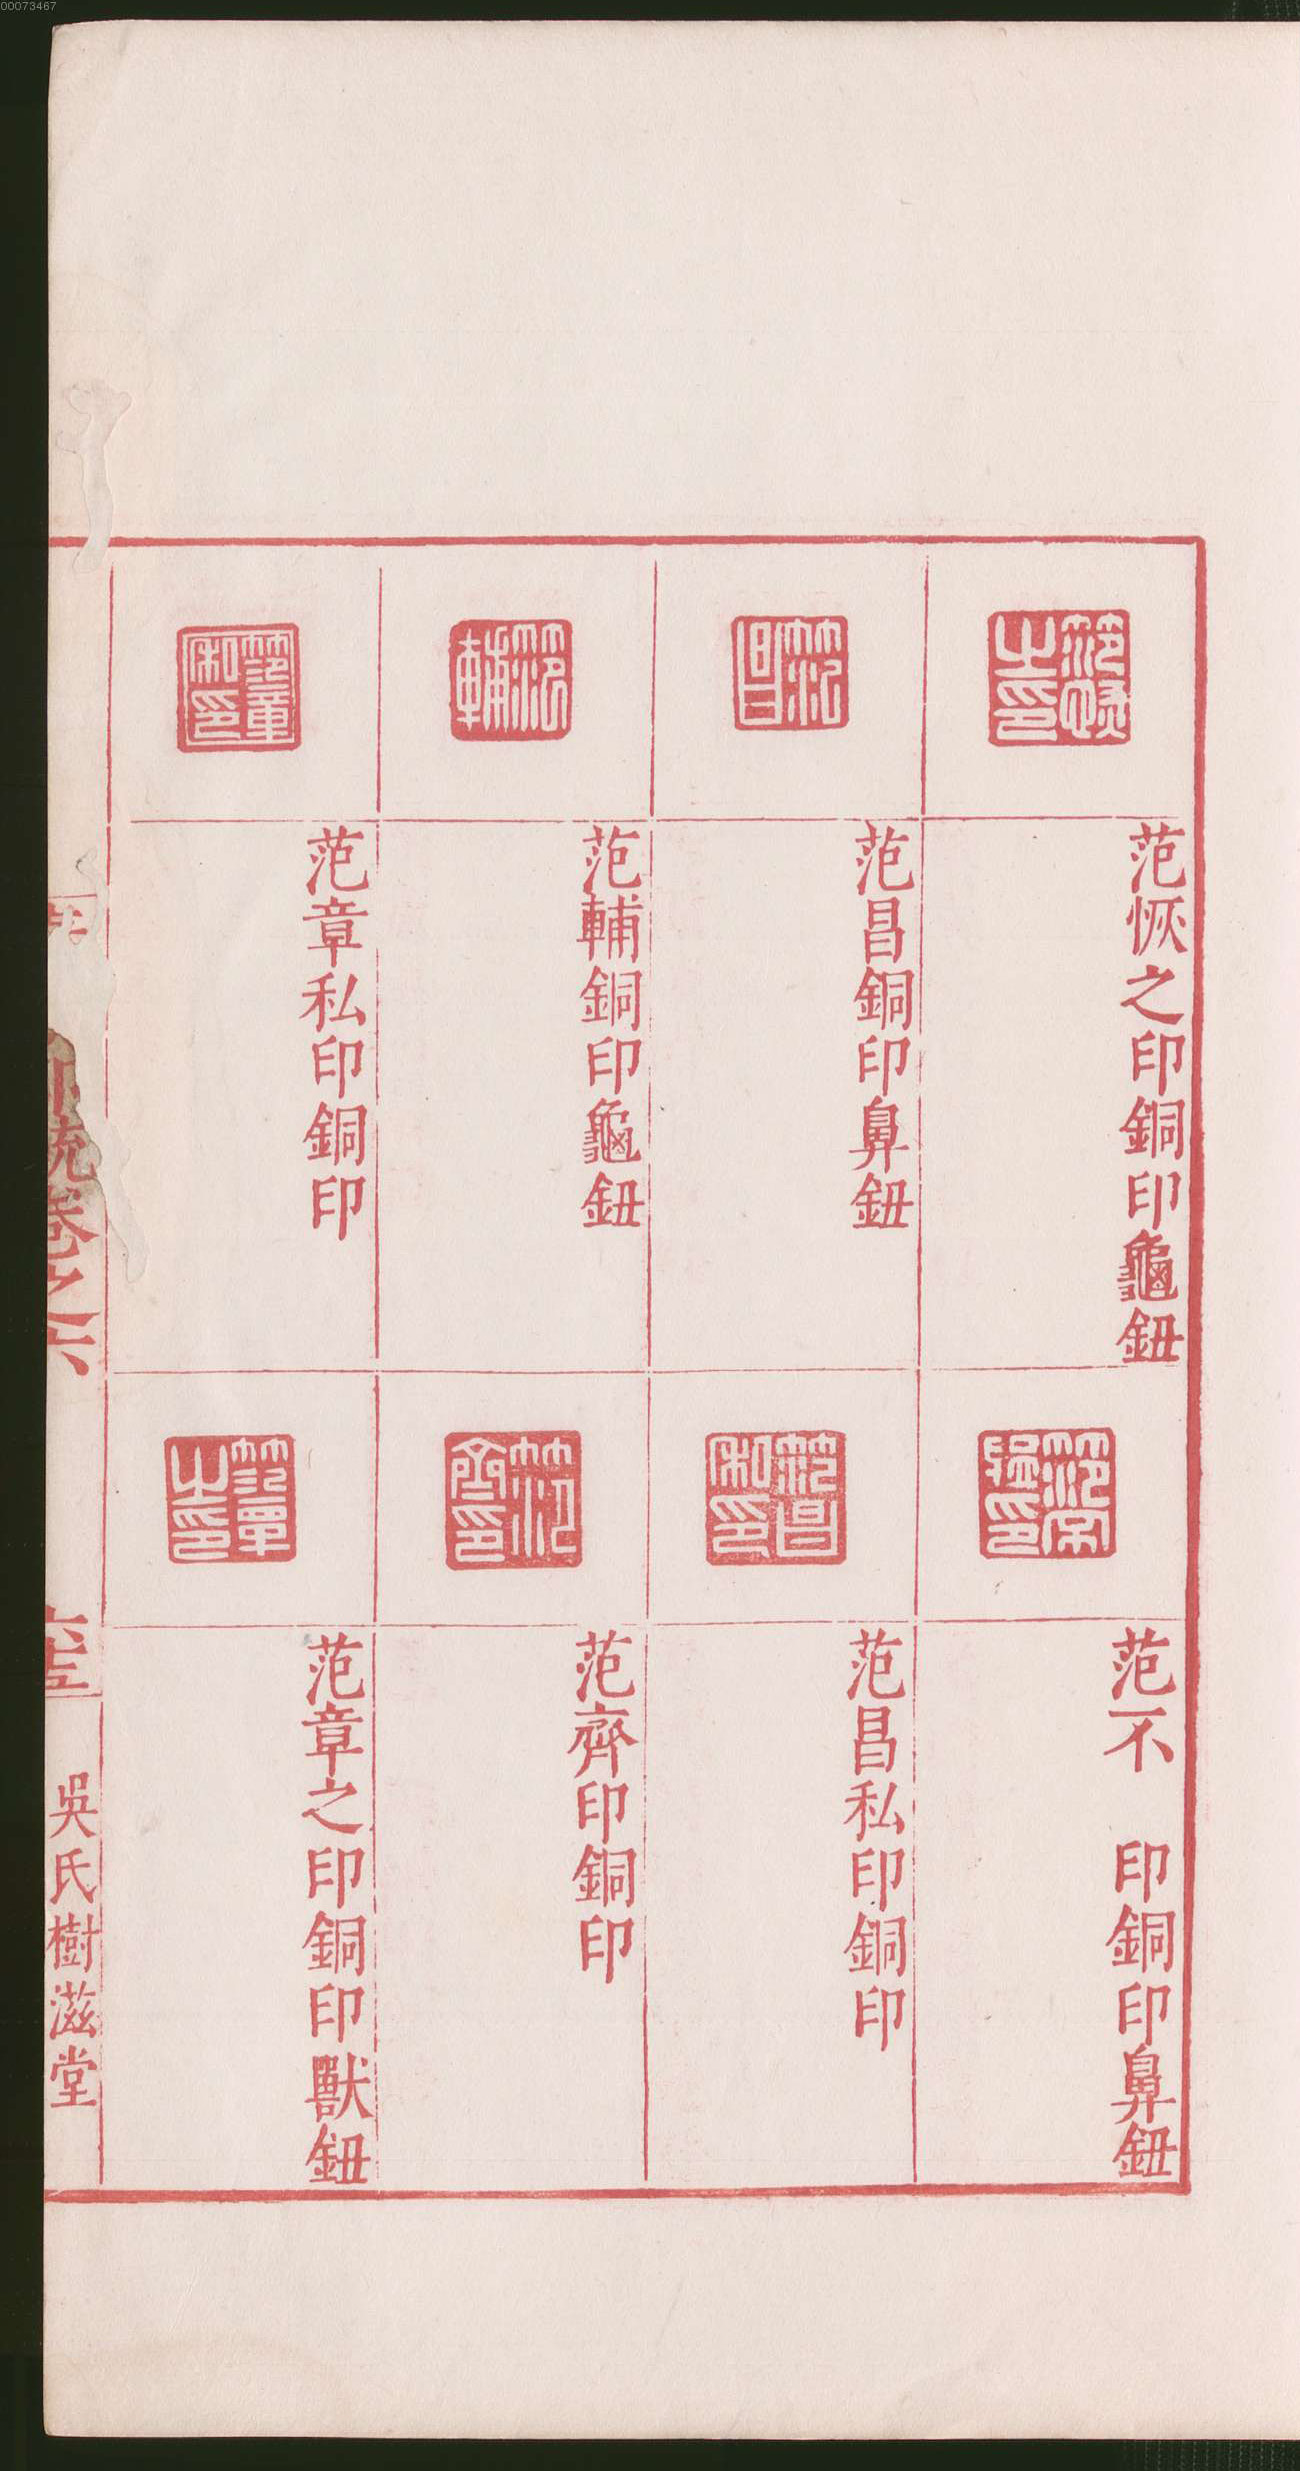 00073467
范恢之印銅印龜鈕
范昌銅印鼻鈕
范輔銅印龜鈕
范章私印銅印
范不 印銅印鼻鈕
范昌私印銅印
范齊印銅印
范章之印銅印獸鈕
統卷之六
吳氏樹滋堂